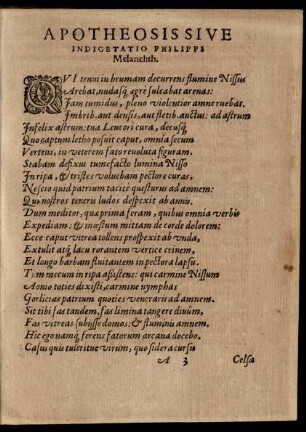 APOTHEOSIS SIVE
INDIGETATIO PHILIPPI
Melanchth.
QVI tenui in brumam decurrens flumine Nissus
Arebat, nudasq́; ægre sulcabat arenas:
Jam tumidus, pleno violentior amne ruebat.
Imbrib. aut densis, aut fletib. auctus: ad astrum
Infelix astrum: tua Leucori cura, decusq́;
Quo captum letho posuit caput, omnia secum
Vertens, in veterem fato revoluta figuram.
Stabam defixus tumefacto lumina Nisso
In ripa, & tristes volucbam pectore curas,
Nescio quid patrium tacitè questurus ad amnem:
Quo nostros teneris ludos despexit ab annis.
Dum meditor, qua prima feram, quibus omnia verbis
Expediam: & mœstum mittam de corde dolorem:
Ecce caput vitrea tollens prospexit ab vnda,
Extulit atq́; lacu rorantem vertice crinem,
Et longo barbam fluitantem in pectora lapsu.
Tum mecum in ripa assistens: qui carmine Nissum
Aonio toties dixisti, carmine nymphas
Gorlicias patrium quoties veneraris ad amnem.
Sit tibi fas tandem, fas limina tangere diuûm,
Fas vitreas subijsse domos: & fluminis amnem.
Hic ego namq́; ferens fatorum arcana docebo,
Casus quis tulerit ue virum, quo sidera cursu
A 3 Celsa